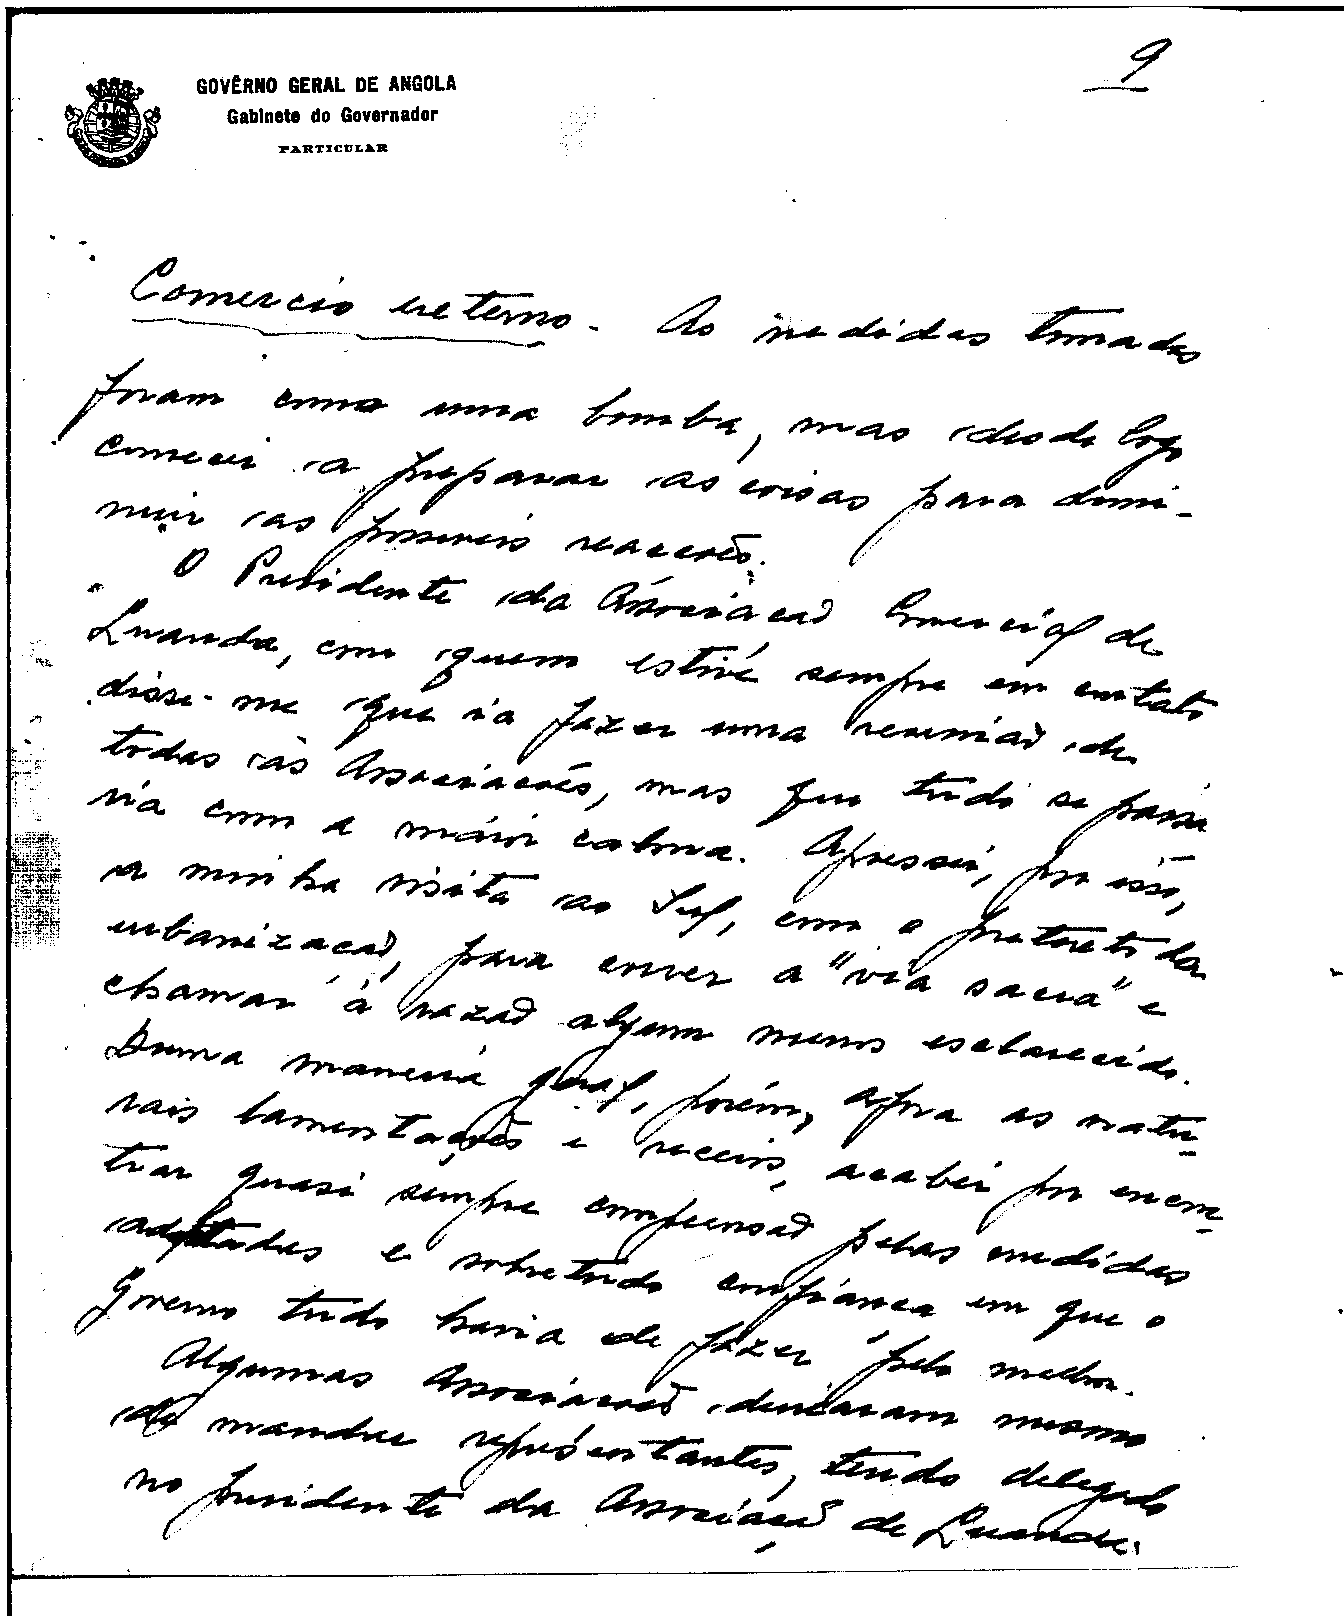 9
GOVÊRNO GERAL DE ANGOLA
Gabinete do Governador
PARTICULAR
Comercio externo. As medidas tomadas
foram como uma bomba, mas desde logo
comecei a preparar as coisas para dimi-
nuir as possiveis reacções.
O Presidente da Associação Comercial de
Luanda, com quem estive sempre em contato
disse-me que ia fazer uma reunião de
todas as Associações, mas que tudo se passa
ria com a maior calma. Apressei, por isso,
a minha visita ao Sul, com o pretexto da
urbanização, para correr a "via sacra" e
chamar à razão algum menos esclarecido.
Duma maneira geral, porém, afora as natu-
rais lamentações e receios, acabei por encon-
trar quasi sempre compreensão pelas medidas
adptadas e sobretudo confiança em que o
Governo tudo havia de fazer pelo melhor.
Algumas Associações deixaram mesmo
de mandar representantes, tendo delegado
no presidente da Associação de Luanda.